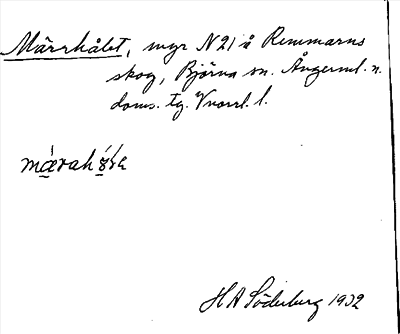 Märrhålet, myr N 21 å Remmarns
skog, Björna sn. Ångerml. n.
doms. tg. V norrl. l.
H A Söderberg 1932